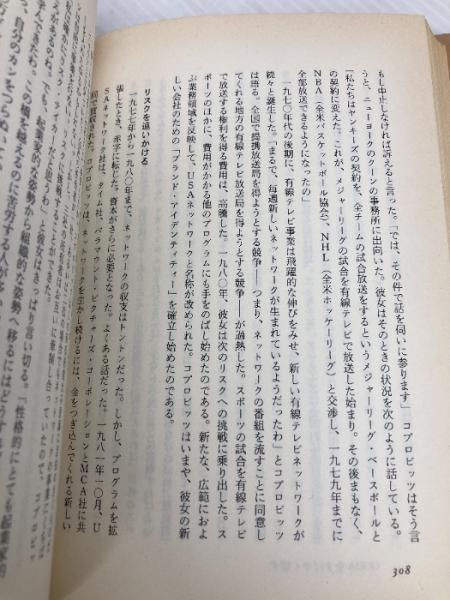 もし中止しなければ訴えると言った。「では、その件で話を伺いに参ります」コプロビッツはそう言
うと、ニューヨークのクーンの事務所に出向いた。彼女はそのときの状況を次のように話している。
「私たちはヤンキーズの契約を、全チームの試合放送をするというメジャーリーグ・ベースボールと
の契約に変えた。これが、メジャーリーグの試合を有線テレビで放送した始まり。その後まもなく、
NBA（全米バスケットボール協会）、NHL（全米ホッケーリーグ）と交渉し、一九七九年までに
全部放送できるようになったの」
一九七〇年代の後期に、有線テレビ事業は飛躍的な伸びをみせ、新しい有線テレビネットワークが
続々と誕生した。「まるで、毎週新しいネットワークが生まれているようだったわ」とコプロビッツ
は語る。全国で提携放送局を得ようとする競争――つまり、ネットワークの番組を流すことに同意し
てくれる地方の有線テレビ放送局を得ようとする競争――が過熱した。スポーツの試合を有線テレビ
で放送する権利を得る費用は、高騰した。一九八〇年、彼女は次のリスクへの挑戦に乗り出した。ス
ポーツのほかに、費用がかかる他のプログラムにも手をのばし始めたのである。新たな、広範におよ
ぶ業務領域を反映して、USAネットワークと名称が改められた。コプロビッツはいまや、彼女の新
しい会社のための「ブランド・アイデンティティー」を確立し始めたのである。
リスクを追いかける
一九七七年から一九八〇年まで、ネットワークの収支はトントンだった。しかし、プログラムを拡
張したとき、赤字に転じた。資本がさらに必要となった。よくある話だった。一九八一年一〇月、U
SAネットワーク社は、タイム社、パラマウント・ピクチャーズ・コーポレーションとMCA社に共
同で買収された。コプロビッツは、ネットワークを生かし続けるには、金をつぎ込んでくれる新しい
308